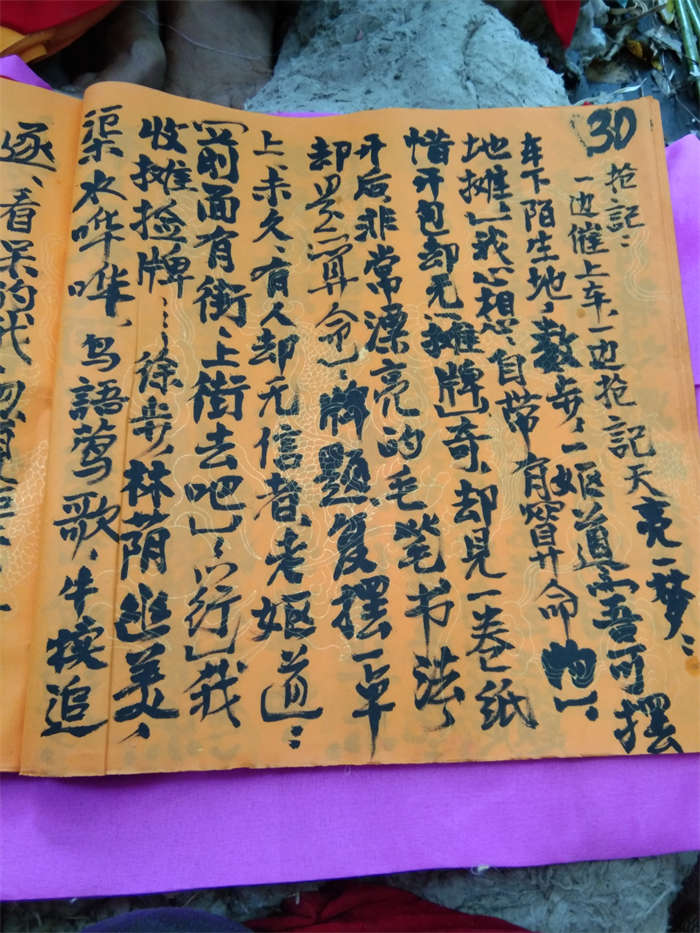 30
抢記:
一边催上车,一边抢記天亮一梦:
车下陌生地,数步,一妪道「吾可摆
地摊」我心想,自带有算命物一:
惜开包却无「摊牌」奇,却见一卷纸
开后,非常漂亮的毛笔书法,
却是「算命」牌题,复摆一单
上,未久,有人却无信者,老妪道:
「前面有街,上街去吧」…「行」我
收摊捡牌……徐步,林荫幽美,
渠水哗哗,鸟語莺歌,牛挨追
逐、看呆的